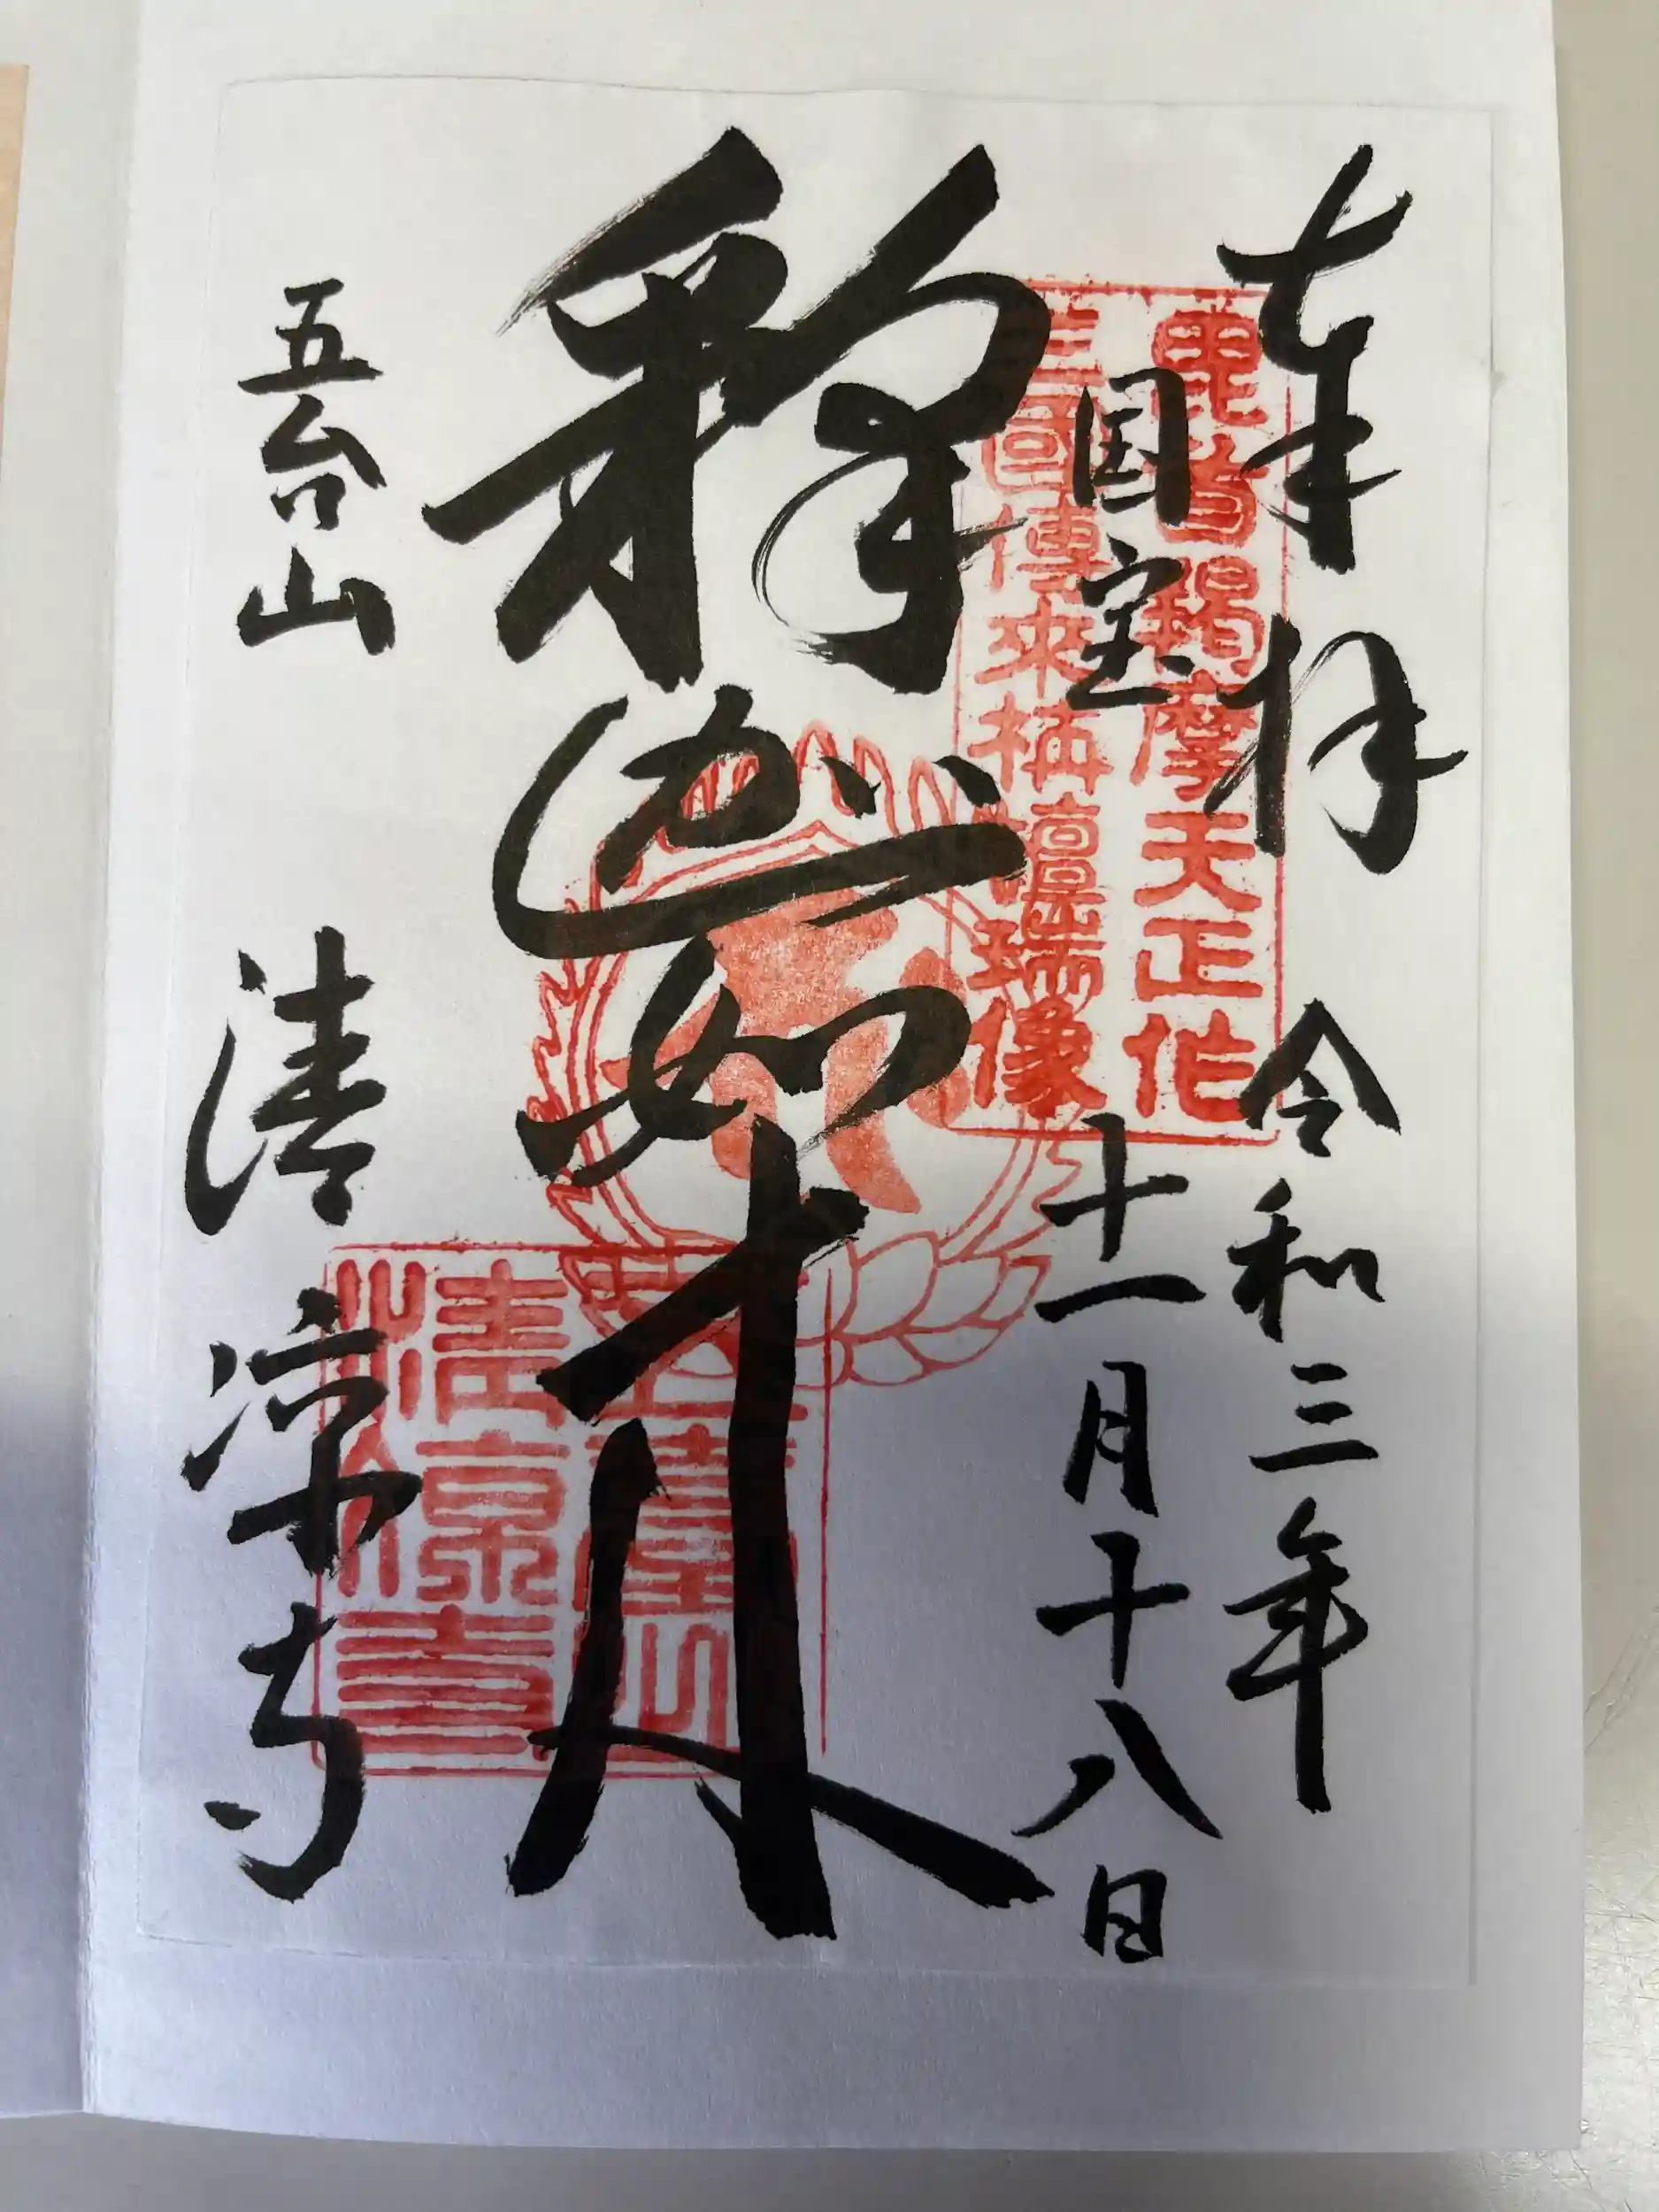 奉拝 令和三年
国宝 十一月十八日
釈迦如来
五台山 清凉寺
毘首羯摩天正作
三國傳来栴檀瑞像
五臺山
清凉寺